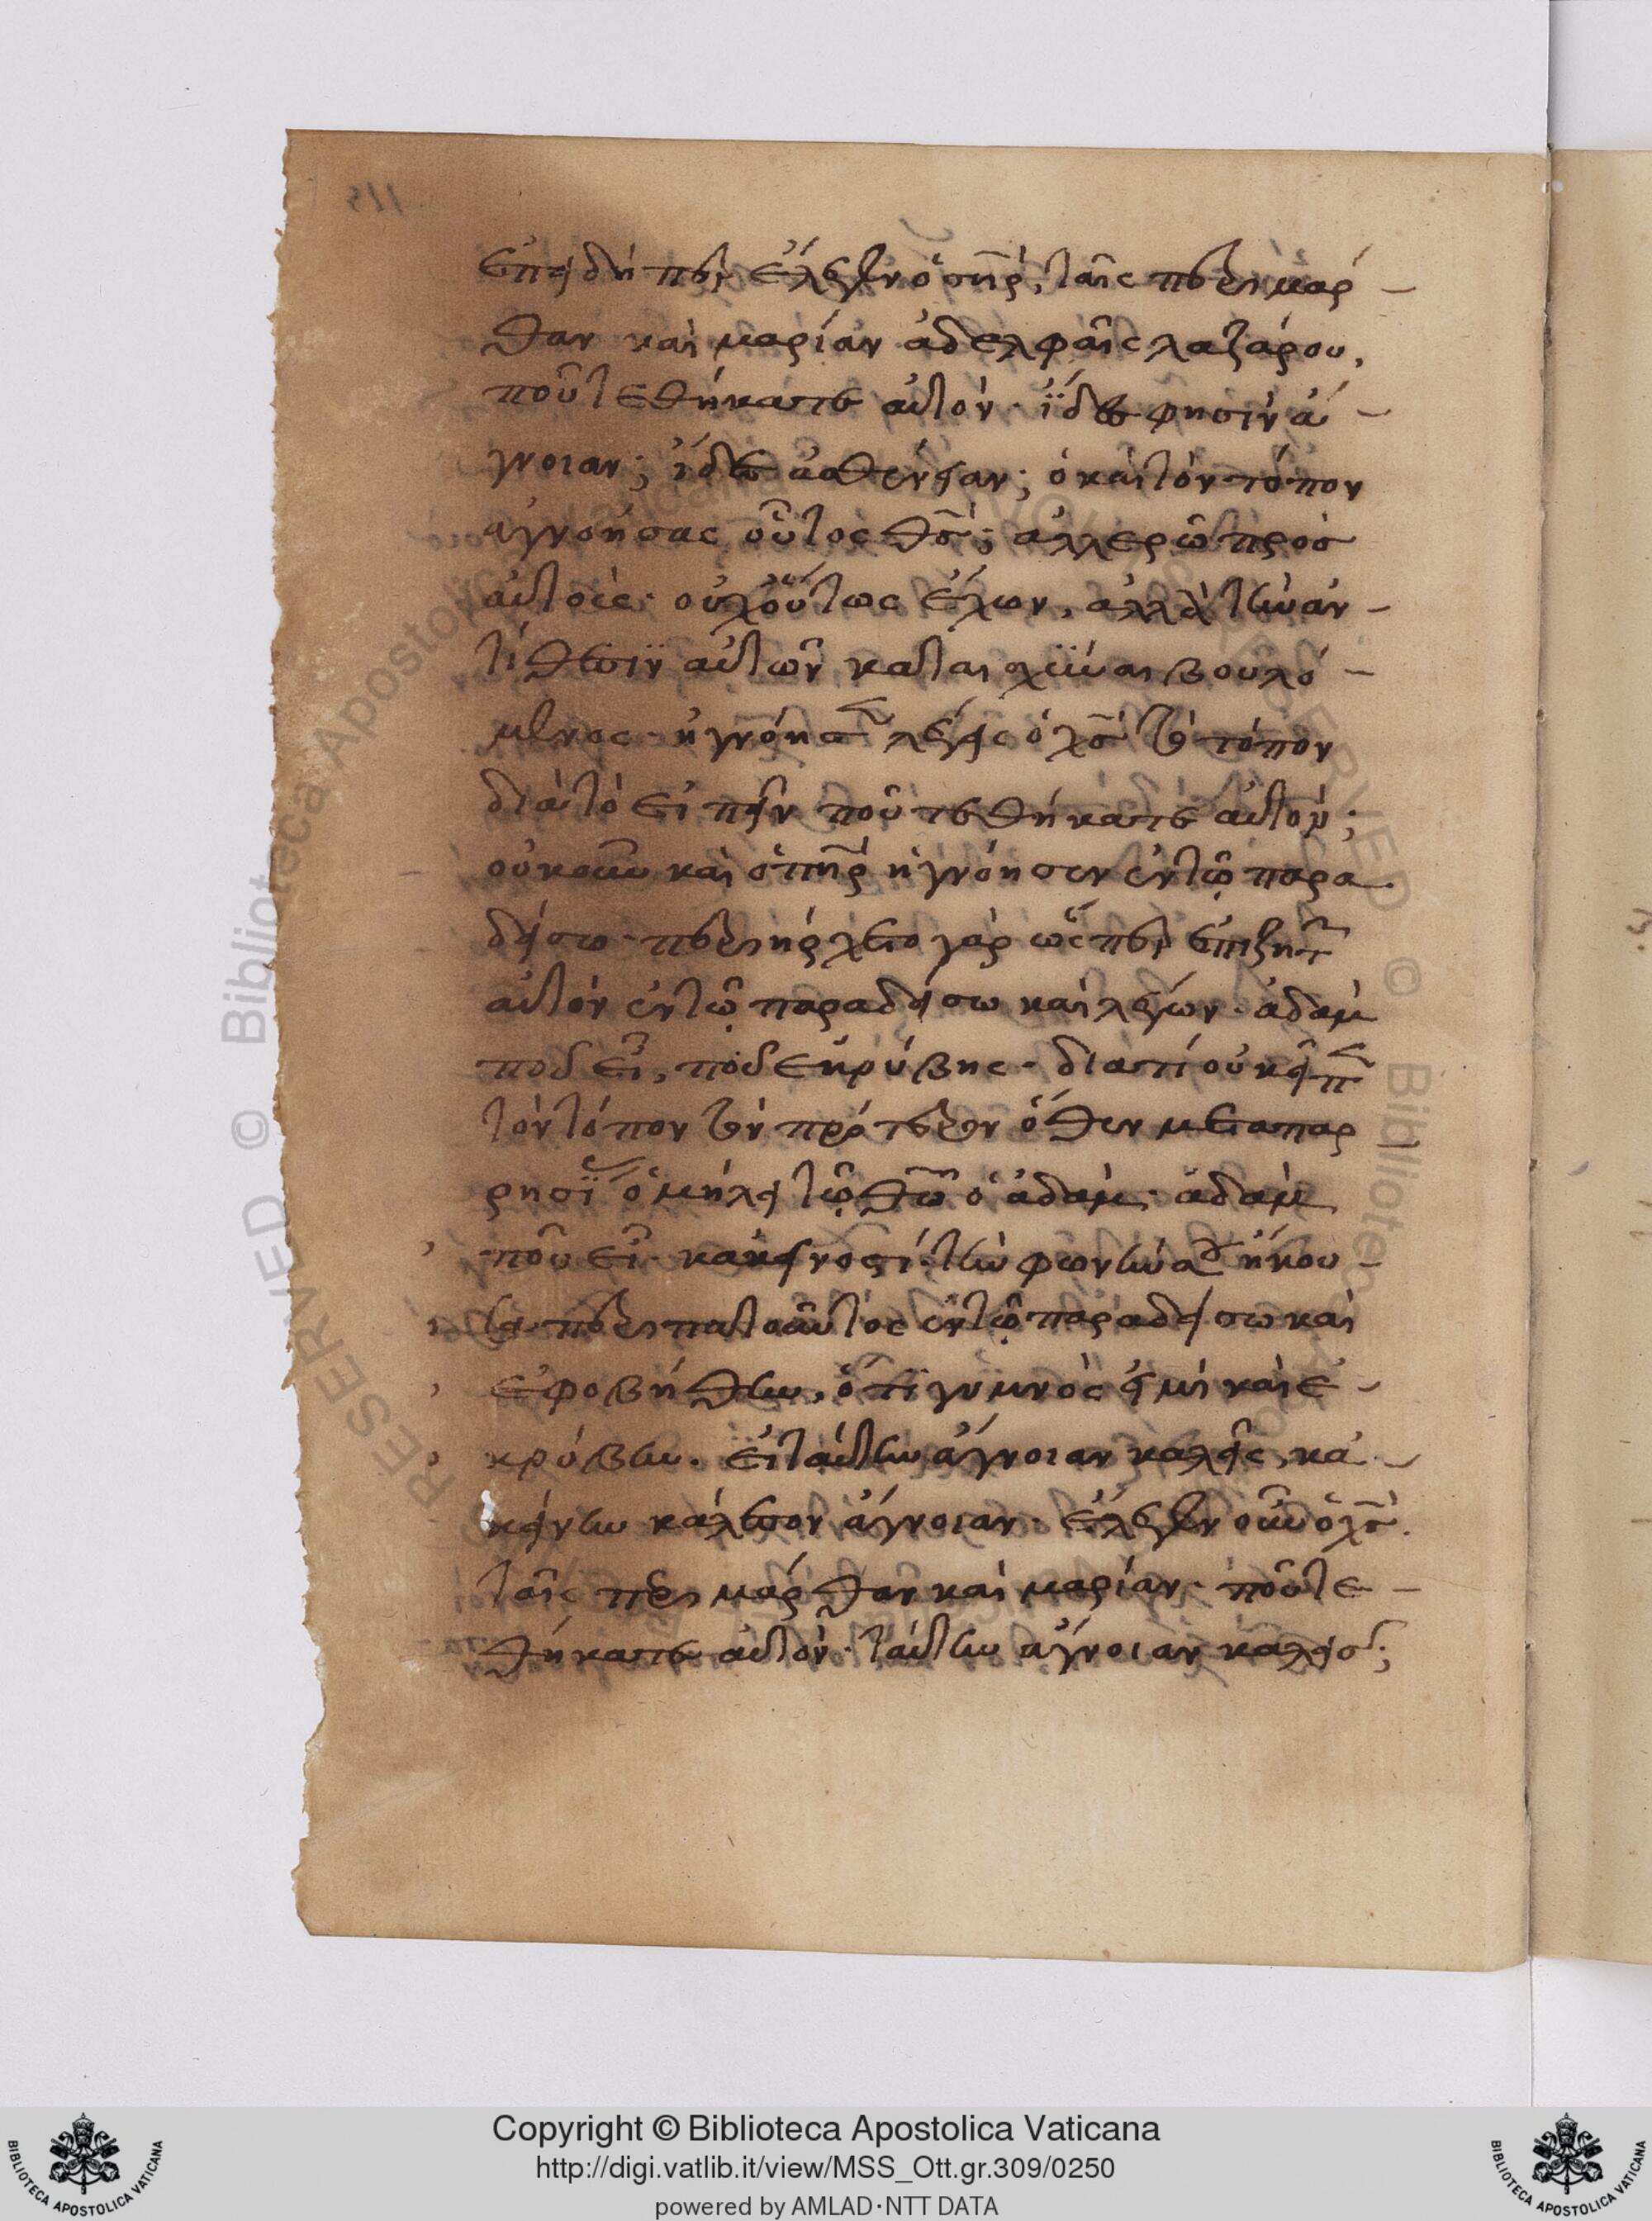 ἐπειδήπερ ἔλεγεν ὁ σηρ, ταῖς περι μάρ –
θαν καὶ μαρίαν ἀδελφαῖς λαζάρου,
ποῦ τεθήκατε αὐτόν· ἴδε φησὶν ἄ –
γνοιαν; ἴδε ἀσθένειαν; ὁ καὶ τὸν τόπον
ἀγνοήσας οὗτος θς; ἀλλ ἐρῶ πρὸσ
αὐτοὺς· οὐχ οὕτως ἔχων, ἀλλὰ τὴν ἀν –
τίθεσιν αὐτῶν καταισχῦναι βουλό –
μενος· ἠγνόησε λέγεις ὁ χς τὸν τόπον
διὰ τὸ εἰπεῖν ποῦ τεθήκατε αὐτόν;
οὐκοῦν καὶ ὁ πηρ ἠγνόησεν ἐν τῷ παρα
δείσω· περιήρχετο γὰρ ὥσπερ ἐπιζητ
αὐτὸν ἐν τῷ παραδείσω καὶ λέγων· ἀδὰμ
ποῦ εἶ, ποῦ ἐκρύβης· διατί οὐκ εἶπ
τὸν τόπον τὸν πρότερον ὅθεν μετὰ παρ –
ρησί ὁμήλει τῷ θω ὁ ἀδάμ· ἀδὰμ
ποῦ εἶ· κἀκεῖνος τί· τὴν φωνήν ἤκου –
σα περιπατοῦντος ἐν τῷ παραδείσω καὶ
ἐφοβήθην, ὅτι γυμνὸς εἰμὶ καὶ ἐ –
κρύβην. εἰ ταύτην ἄγνοιαν καλεῖς, κα –
κείνην κάλεσον ἄγνοιαν· ἔλεγεν οὖν ὁ χς
ταῖς περι μάρθαν καὶ μαρίαν· ποῦ τε –
θήκατε αὐτόν· ταύτην ἄγνοιαν καλεῖσ;
Copyright © Biblioteca Apostolica Vaticana
http://digi.vatlib.it/view/MSS_Ott.gr.309/0250
powered by AMLAD·NTT DATA